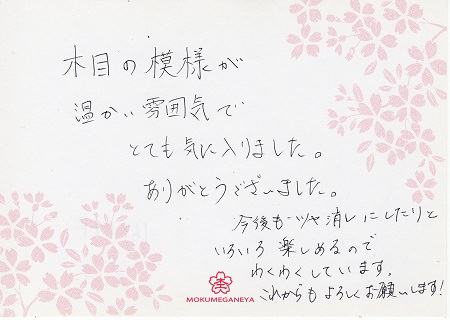 木目の模様が
温かい雰囲気で
とても気に入りました。
ありがとうございました。
今後もツヤ消しにしたりと
いろいろ楽しめるので
わくわくしています。
これからもよろしくお願いします!
MOKUMEGANEYA